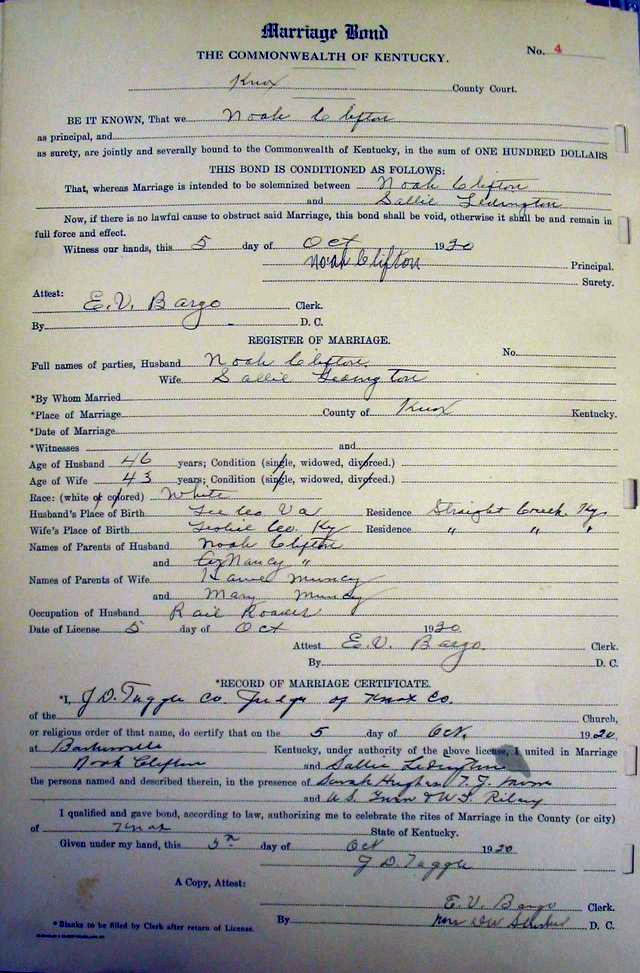 Marriage Bond
THE COMMONWEALTH OF KENTUCKY.
No. 4
Knox County Court.
BE IT KNOWN, That we Noah Clifton
as principal, and
as surety, are jointly and severally bound to the Commonwealth of Kentucky, in the sum of ONE HUNDRED DOLLARS
THIS BOND IS CONDITIONED AS FOLLOWS:
That, whereas Marriage is intended to be solemnized between Noah Clifton
and Sallie Ledington
Now, if there is no lawful cause to obstruct said Marriage, this bond shall be void, otherwise it shall be and remain in
full force and effect.
Witness our hands, this 5 day of Oct 1920
Noah Clifton Principal.
Surety.
Attest:
E. V. Bargo Clerk.
By D. C.
REGISTER OF MARRIAGE.
No.
Full names of parties, Husband Noah Clifton
Wife Sallie Ledington
*By Whom Married
*Place of Marriage County of Knox Kentucky.
*Date of Marriage
*Witnesses and
Age of Husband 46 years; Condition (single, widowed, divorced.)
Age of Wife 43 years; Condition (single, widowed, divorced.)
Race: (white or colored) White
Husband's Place of Birth Lee Co Va Residence Straight Creek Ky
Wife's Place of Birth Leslie Co. Ky Residence " " "
Names of Parents of Husband Noah Clifton
and Nancy "
Names of Parents of Wife Muncy
and Mary Muncy
Occupation of Husband Rail Roader
Date of License 5 day of Oct 1920
Attest E. V. Bargo. Clerk.
By D. C.
*RECORD OF MARRIAGE CERTIFICATE.
*I, J. D. Tuggle Co. Judge of Knox Co.
of the Church,
or religious order of that name, do certify that on the 5 day of Oct. 1920
at Barbourville Kentucky, under authority of the above license, I united in Marriage
Noah Clifton and Sallie Ledington
the persons named and described therein, in the presence of Sarah Hughes T. J.
and & W. F. Riley
I qualified and gave bond, according to law, authorizing me to celebrate the rites of Marriage in the County (or city)
of Knox State of Kentucky.
Given under my hand, this 5th day of Oct 1920
J D Tuggle
A Copy, Attest:
E. V. Bargo Clerk.
By D. C.
*Blanks to be filled by Clerk after return of License.